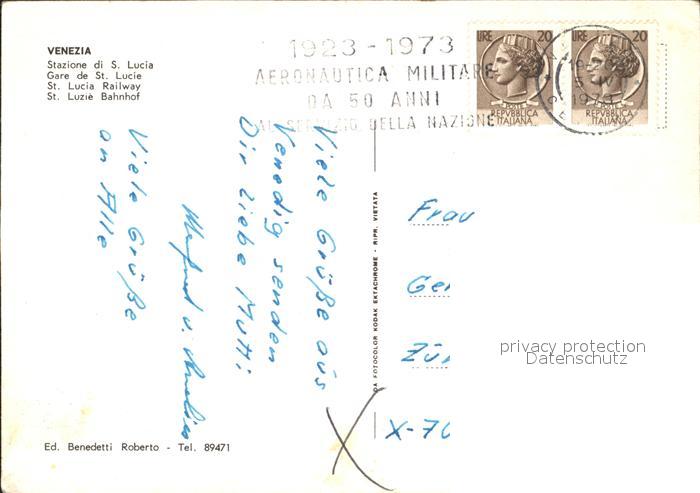 VENEZIA
Stazione di S. Lucia
Gare de St. Lucie
St. Lucia Railway
St. Luziè Bahnhof
1923-1973
AERONAUTICA MILITARE
DA 50 ANNI
AL SERVIZIO DELLA NAZIONE
LIRE 20
REPVBBLICA
ITALIANA
LIRE 20
POSTE
REPVBBLICA
ITALIANA
Viele Grüße aus
Venedig senden
Dir liebe Mutti
Manfred u.
Viele Grüße
an Alle
DA FOTOCOLOR KODAK EKTACHROME - RIPR. VIETATA
Frau
Ger
Zür
X-70
privacy protection
Datenschutz
Ed. Benedetti Roberto - Tel. 89471